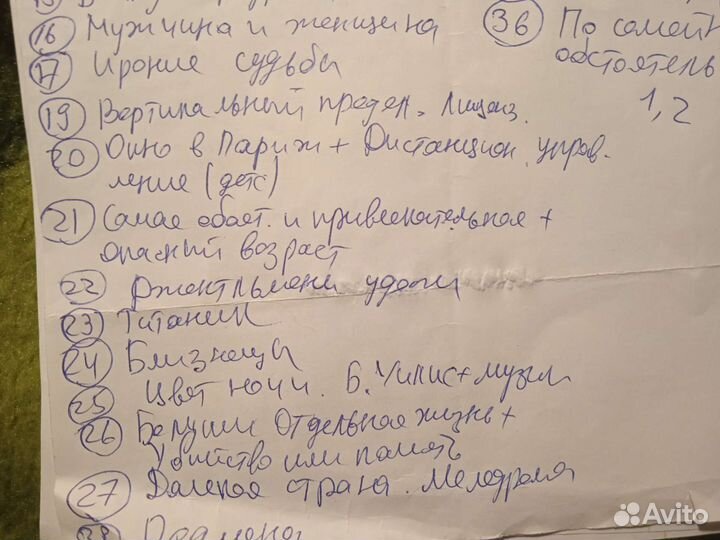 16 Мужчина и женщина
17 Ирония судьбы
19 Вертикальный предел. Лиценз.
20 Окно в Париж + Дистанцион. управ-
ление (детс)
21 Самая обаят. и привлекательная +
опасный возраст
22 Джентльмены удачи
23 Титаник
24 Близнецы
25 Цвет ночи. Б. Уилис +
26 Отдельная жизнь +
Убийство или память
27 Далекая страна. Мелодрама
28
36 По семейн
обстоятель
1,2
Avito